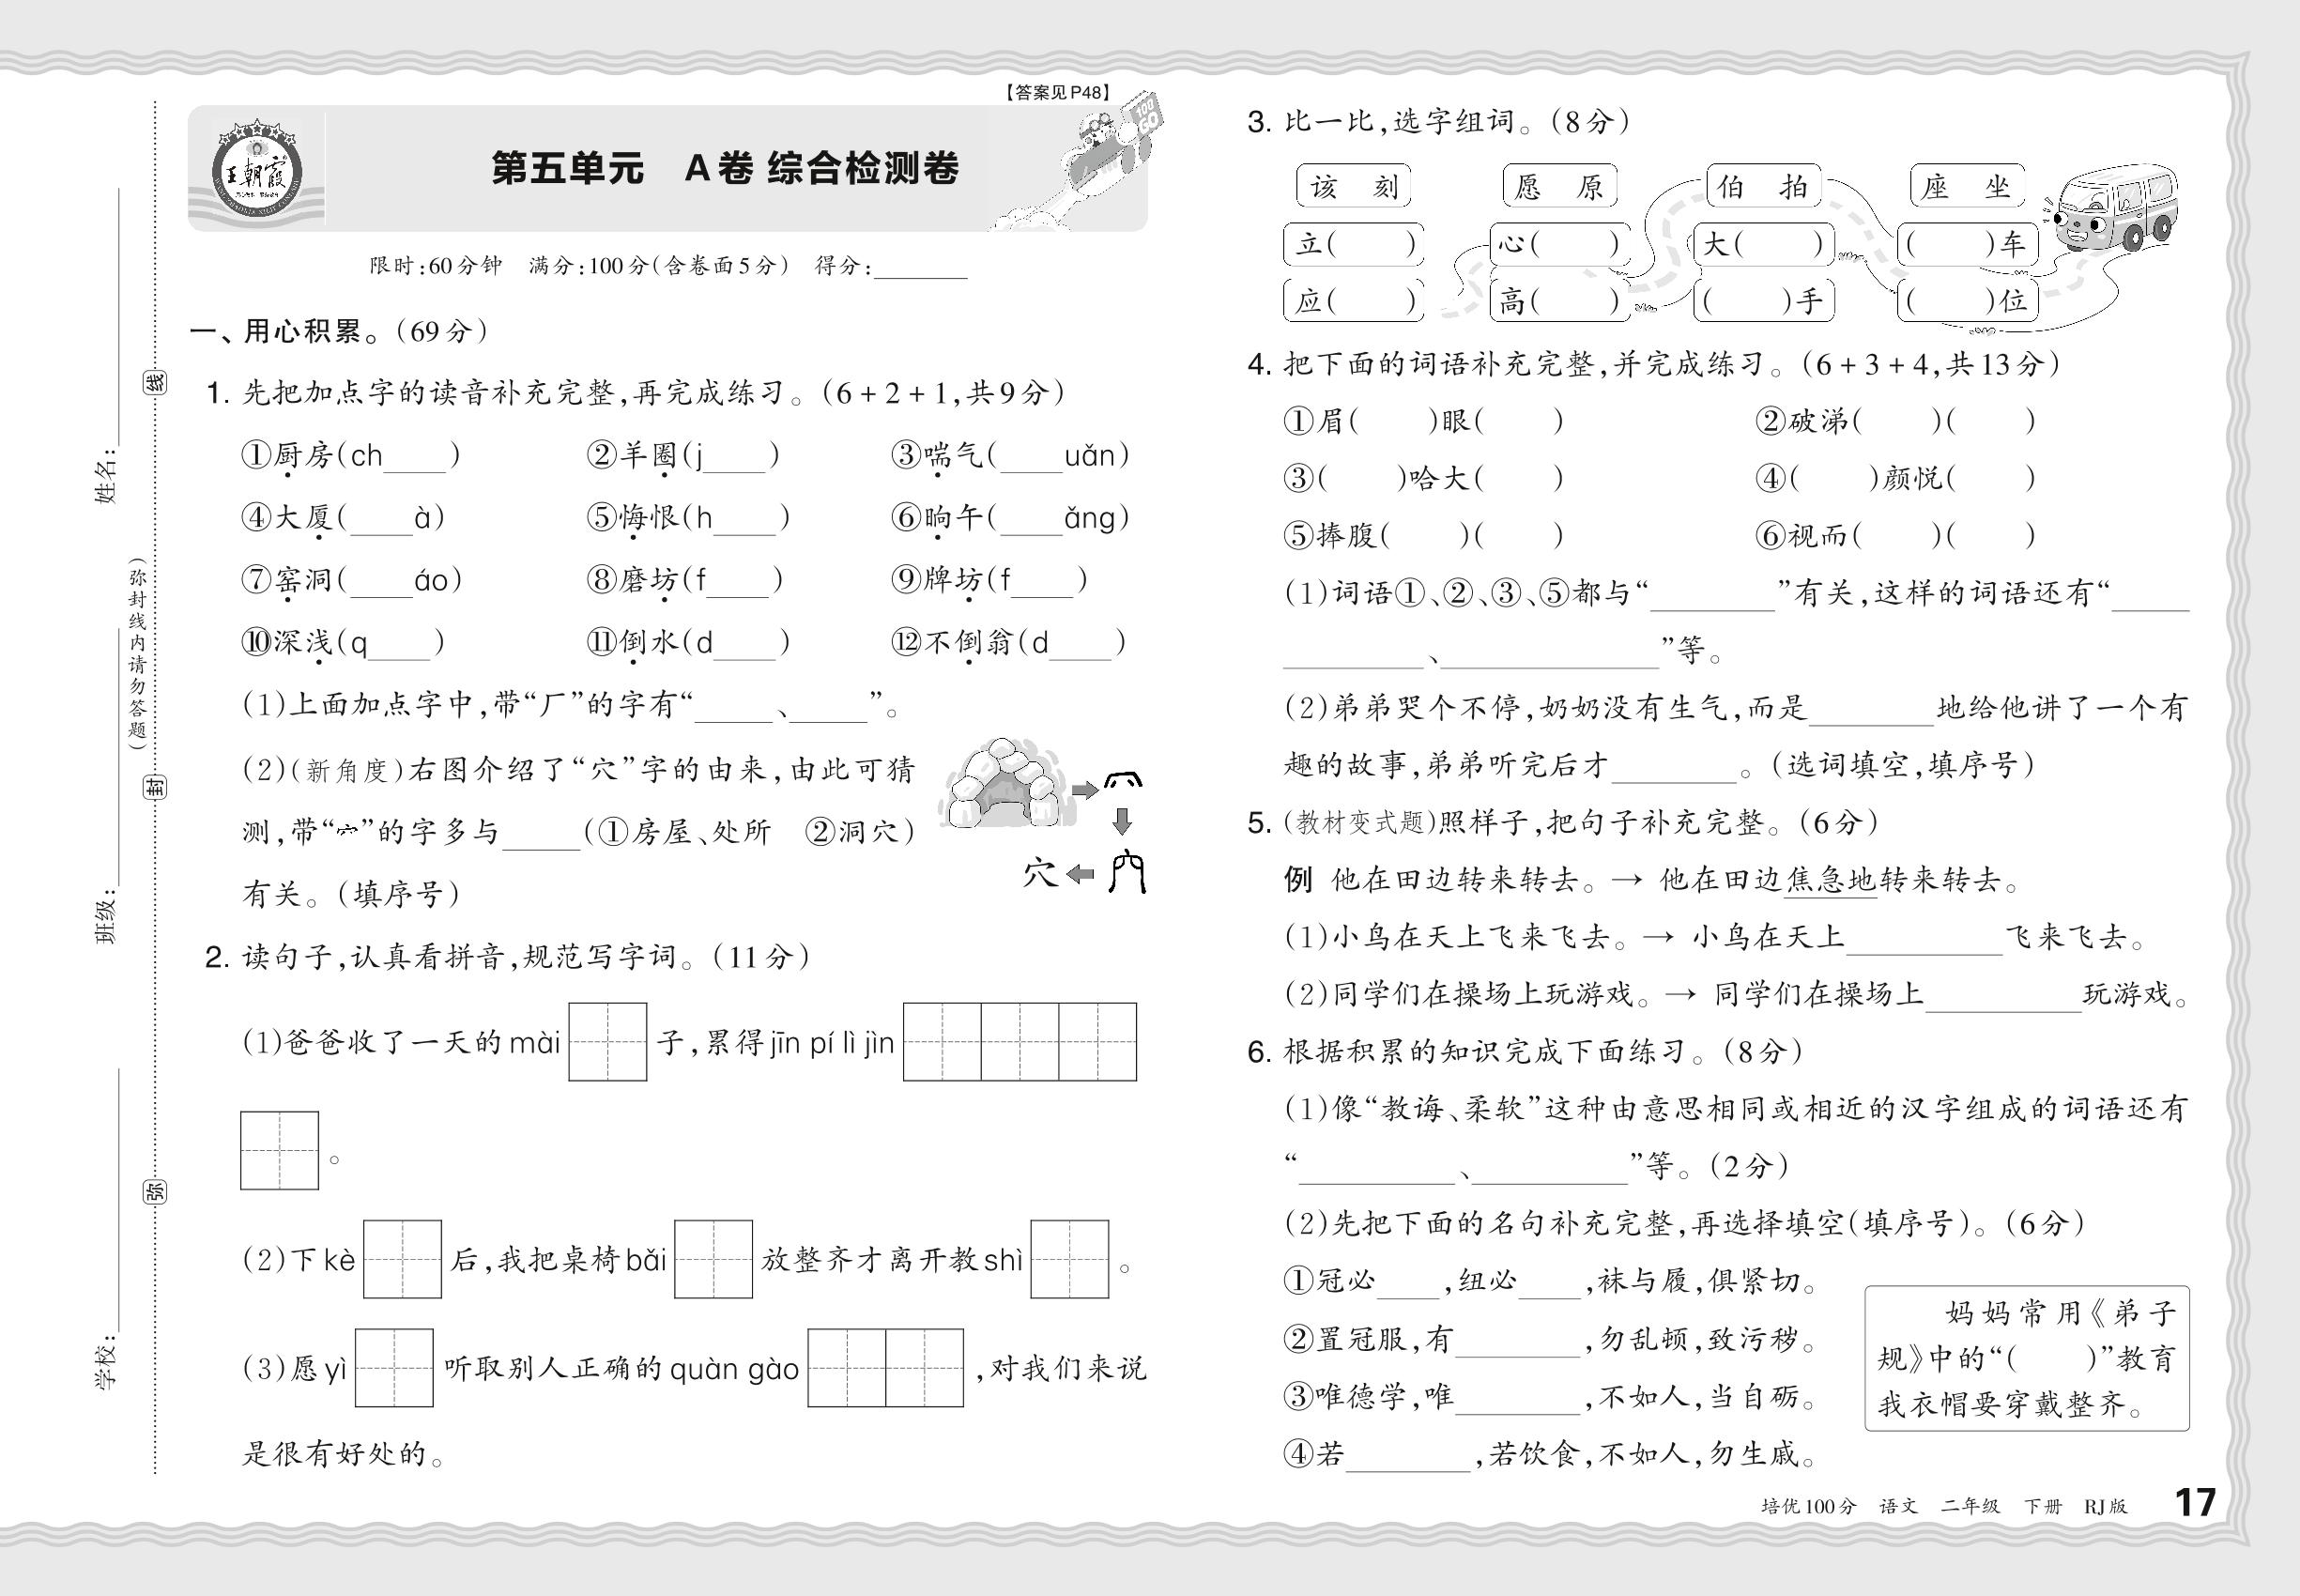 【答案见P48】
王朝霞
第五单元 A卷 综合检测卷
限时:60分钟 满分:100分(含卷面5分) 得分:________
一、用心积累。(69分)
1. 先把加点字的读音补充完整,再完成练习。(6+2+1,共9分)
①厨房(ch____) ②羊圈(j____) ③喘气(____uǎn)
④大厦(____à) ⑤悔恨(h____) ⑥晌午(____ǎng)
⑦窑洞(____áo) ⑧磨坊(f____) ⑨牌坊(f____)
⑩深浅(q____) ⑪倒水(d____) ⑫不倒翁(d____)
(1)上面加点字中,带“厂”的字有“_____、_____”。
(2)(新角度)右图介绍了“穴”字的由来,由此可猜
测,带“⺳”的字多与_____(①房屋、处所 ②洞穴)
有关。(填序号)
穴
2. 读句子,认真看拼音,规范写字词。(11分)
(1)爸爸收了一天的mài 子,累得jīn pí lì jìn
。
(2)下kè 后,我把桌椅bǎi 放整齐才离开教shì 。
(3)愿yì 听取别人正确的quàn gào ,对我们来说
是很有好处的。
3. 比一比,选字组词。(8分)
该 刻 愿 原 伯 拍 座 坐
立( ) 心( ) 大( ) ( )车
应( ) 高( ) ( )手 ( )位
4. 把下面的词语补充完整,并完成练习。(6+3+4,共13分)
①眉( )眼( ) ②破涕( )( )
③( )哈大( ) ④( )颜悦( )
⑤捧腹( )( ) ⑥视而( )( )
(1)词语①、②、③、⑤都与“________”有关,这样的词语还有“_____
_________、______________”等。
(2)弟弟哭个不停,奶奶没有生气,而是________地给他讲了一个有
趣的故事,弟弟听完后才________。(选词填空,填序号)
5. (教材变式题)照样子,把句子补充完整。(6分)
例 他在田边转来转去。→ 他在田边焦急地转来转去。
(1)小鸟在天上飞来飞去。→ 小鸟在天上__________飞来飞去。
(2)同学们在操场上玩游戏。→ 同学们在操场上__________玩游戏。
6. 根据积累的知识完成下面练习。(8分)
(1)像“教诲、柔软”这种由意思相同或相近的汉字组成的词语还有
“__________、__________”等。(2分)
(2)先把下面的名句补充完整,再选择填空(填序号)。(6分)
①冠必____,纽必____,袜与履,俱紧切。
②置冠服,有________,勿乱顿,致污秽。
③唯德学,唯________,不如人,当自砺。
④若________,若饮食,不如人,勿生戚。
妈妈常用《弟子
规》中的“( )”教育
我衣帽要穿戴整齐。
培优100分 语文 二年级 下册 RJ版 17
学校:
班级:
姓名:
(弥封线内请勿答题)
弥
封
线
100
GO